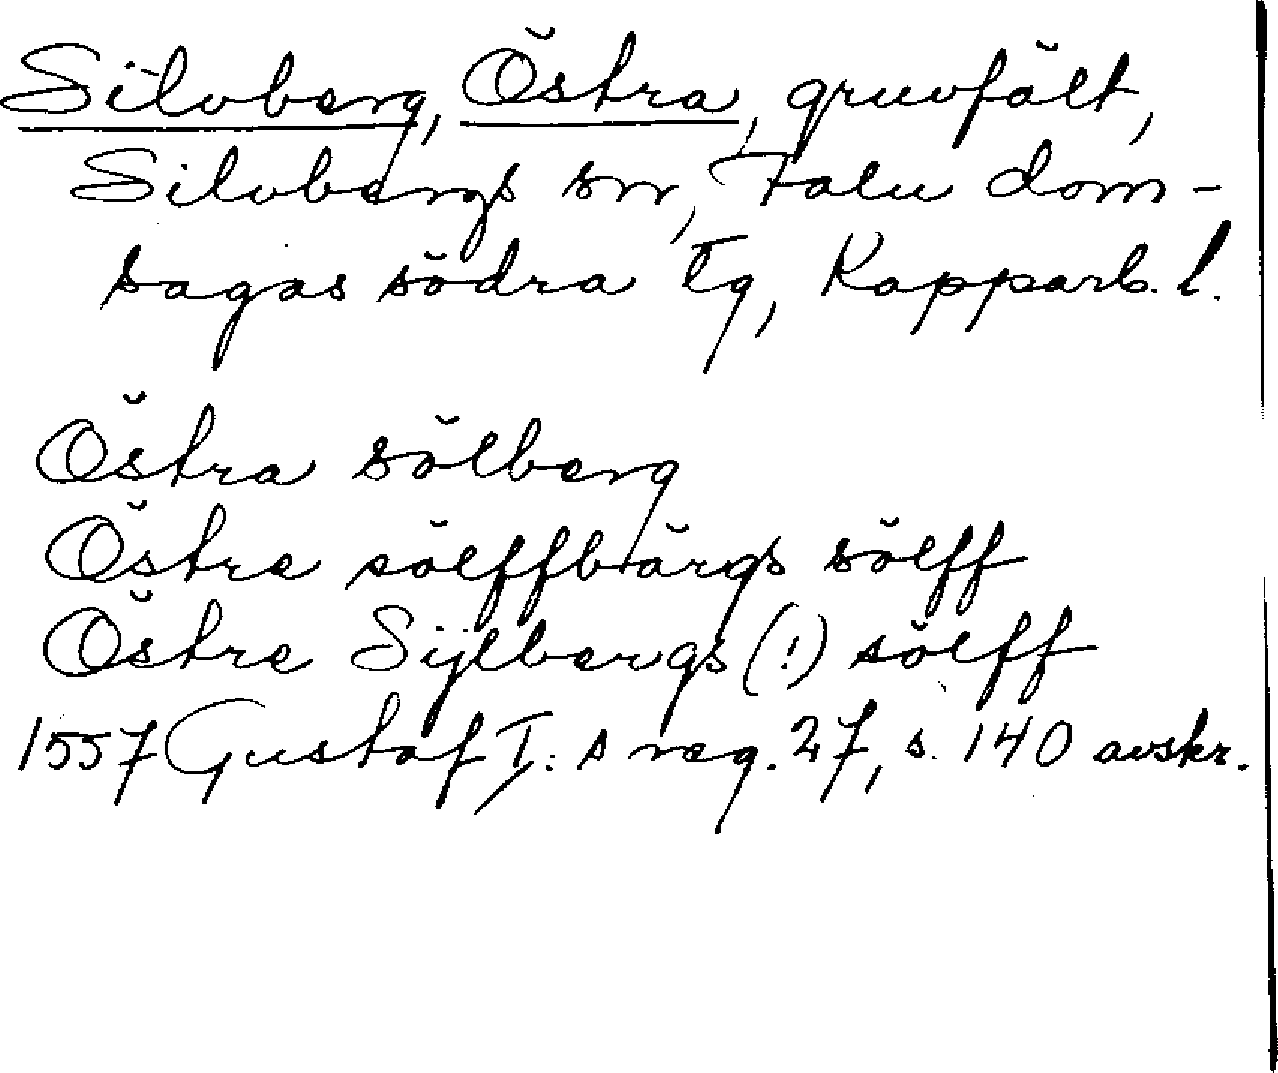 Silvberg, Östra, gruvfält,
Silvbergs sn, Falu dom-
sagas södra tg, Kopparb. l.
Östra sölberg
Östre sölffbärgs sölff
Östre Sÿlbergs (!) sölff
1557 Gustaf I: s reg. 27, s. 140 avskr.